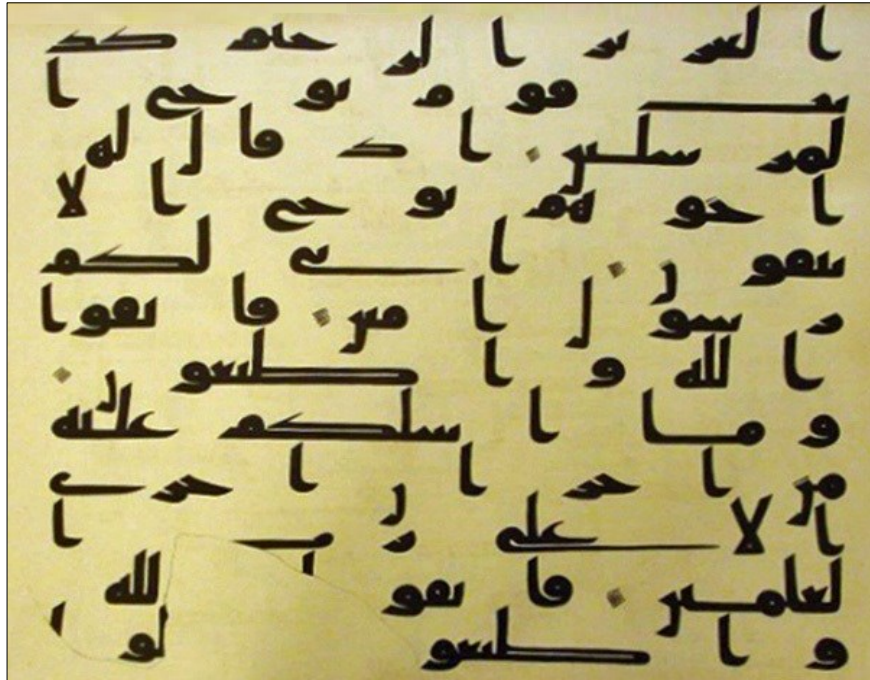 العزيز الرحيم كذ
بت قوم نوح ا
لمرسلين اذ قال لهم
اخوهم نوح الا
تتقون اني لكم
رسول امين فاتقوا
الله واطيعون
وما اسلكم عليه
من اجر ان اجري
الا على رب ا
لعلمين فاتقوا الله
واطيعو لوا